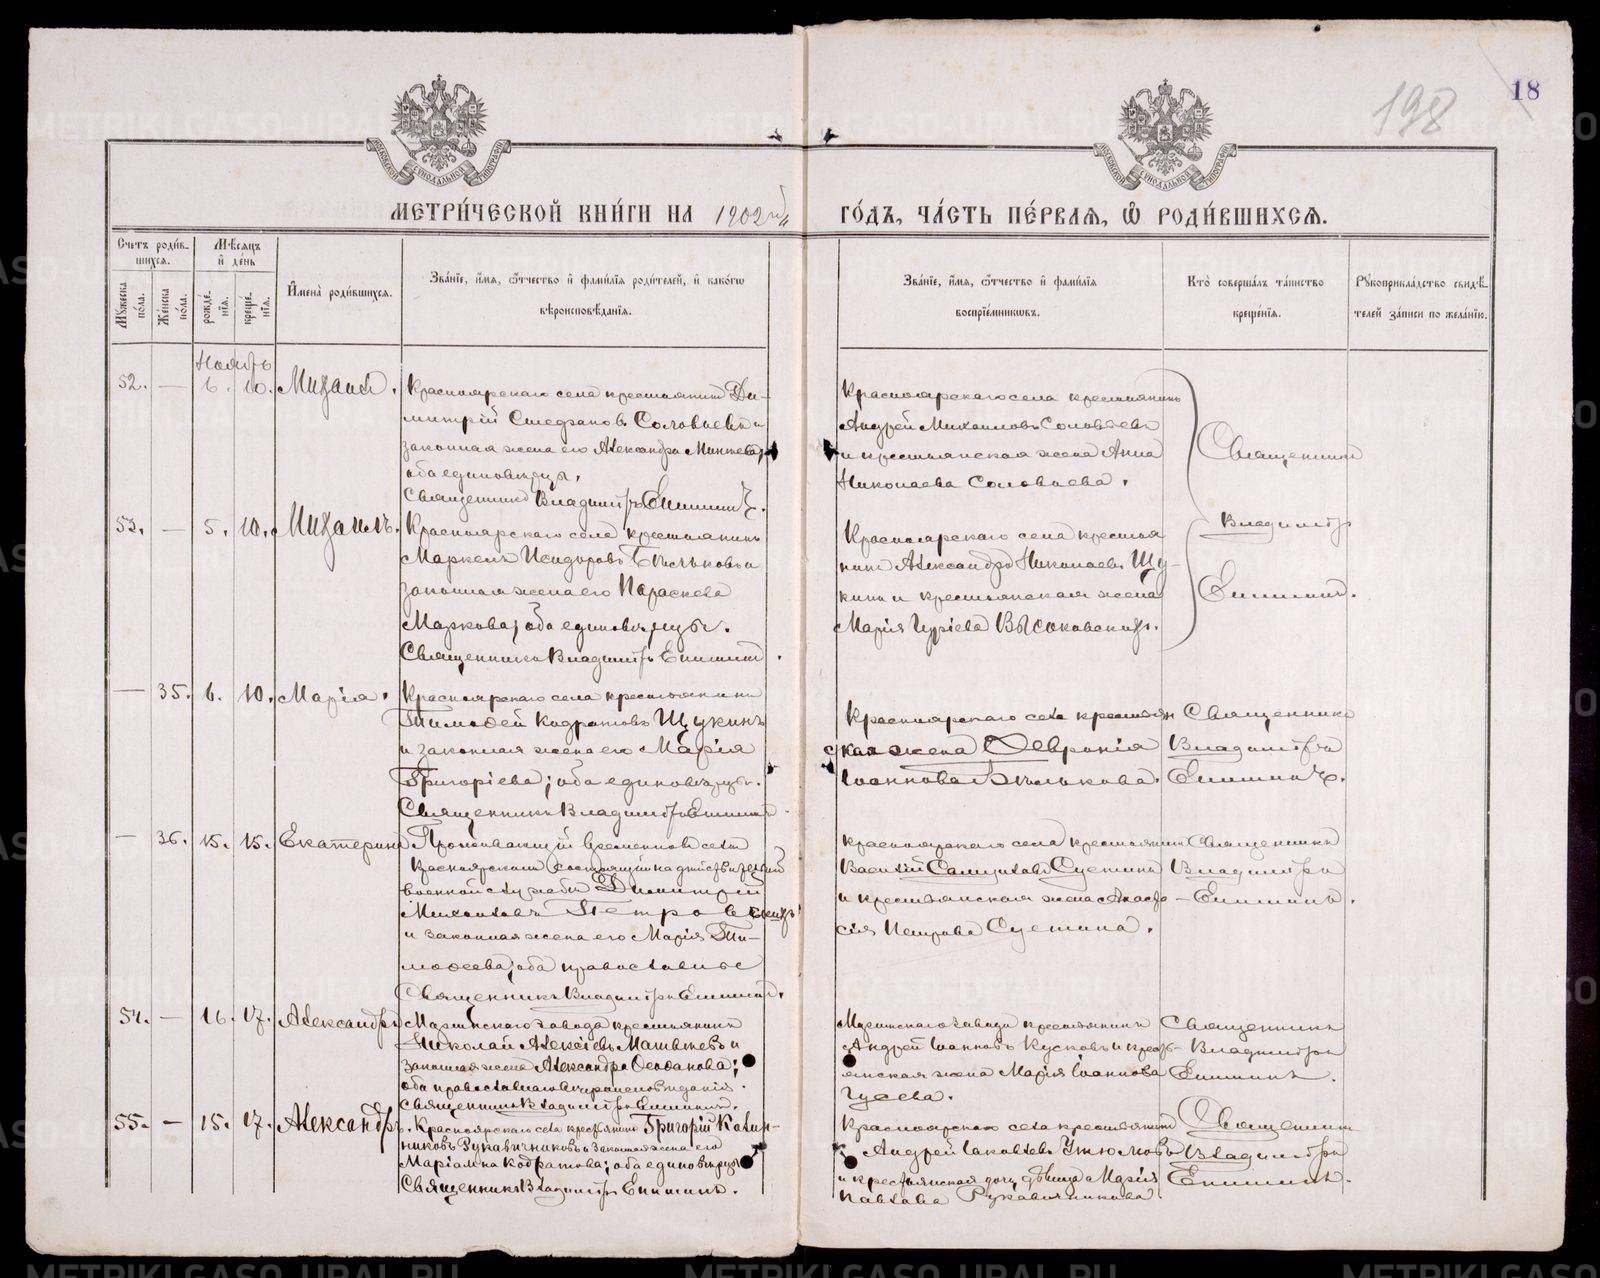 198
18
МЕТРИ́ЧЕСКОЙ КНИ́ГИ НА 1902 годъ
ГО́ДЪ, ЧА́СТЬ ПЕ́РВАЯ, Ѽ РОДИ́ВШИХСЯ.
Счетъ роди́в-
шихся.
Мѣ́сяцъ
и҆ де́нь
Мꙋ́жеска
по́ла.
Же́нска
по́ла.
рожде́-
нїя.
креще́-
нїя.
И҆мена̀ роди́вшихся.
Зва́нїе, и҆́мя, ѻ҆́тчество и҆ фами́лїя роди́телей, и҆ како́гѡ
вѣроисповѣ́данїя.
Зва́нїе, и҆́мя, ѻ҆́тчество и҆ фами́лїя
воспрїе́мникѡвъ.
Кто̀ соверша́лъ та́инство
креще́нїя.
Рꙋкоприкла́дство свидѣ́-
телей за́писи по жела́нїю.
Ноябрь
52. — 6. 10. Михаилъ.
Красноярскаго села крестьянинъ Ди-
митрій Стефановъ Соловьевъ и
законная жена его Александра
оба единовѣрцы.
Священникъ Владиміръ Епишинъ.
Красноярскаго села крестьянинъ
Андрей Михаиловъ Соловьевъ
и крестьянская жена Анна
Николаева Соловьева.
Священникъ
Владиміръ
Епишинъ.
53. — 5. 10. Михаилъ.
Красноярскаго села крестьянинъ
Маркелъ Исидоровъ Бѣльковъ и
законная жена его Параскева
Маркова; оба единовѣрцы.
Священникъ Владиміръ Епишинъ.
Красноярскаго села крестья
нинъ Александръ Николаевъ Щу-
кинъ и крестьянская жена
Марія Гуріева
— 35. 6. 10. Марія.
Красноярскаго села крестьянинъ
Тимофей Кодратовъ Щукинъ
и законная жена его Марія
Григоріева; оба единовѣрцы.
Священникъ Владиміръ Епишинъ
Красноярскаго села крестьян
ская жена Февронія
Іоаннова Бѣлькова.
Священникъ
Владиміръ
Епишинъ.
— 36. 15. 15. Екатерина
Проживающій временно въ селѣ
Красноярскомъ состоящій на дѣйствительной
военной службѣ Димитрій
Михаиловъ
и законная жена его Марія Ти-
мофеева, оба православные
Священникъ Владиміръ Епишинъ.
Красноярскаго села крестьянинъ
Василій Самуиловъ Суетинъ
и крестьянская жена Анаста-
сія Петрова Суетина.
Священникъ
Владиміръ
Епишинъ.
54. — 16. 17. Александръ
Маріинскаго завода крестьянинъ
Николай Алексіевъ Матвѣевъ и
законная жена Александра Феофанова;
оба православнаго вѣроисповѣданія.
Священникъ Владиміръ Епишинъ.
Маріинскаго завода крестьянинъ
Андрей Іоанновъ Кусковъ и кресть-
янская жена Марія Іоаннова
Гусева.
Священникъ
Владиміръ
Епишинъ.
55. — 15. 17. Александръ.
Красноярскаго села крестьянинъ Григорій Калин-
никовъ Рукавичниковъ и законная жена его
Маріамна Кодратова; оба единовѣрцы
Священникъ Владиміръ Епишинъ.
Красноярскаго села крестьянинъ
Андрей Іаковлевъ Утюмовъ
и крестьянская дочь дѣвица Марія
Павлова Рукавичникова.
Священникъ
Владиміръ
Епишинъ.